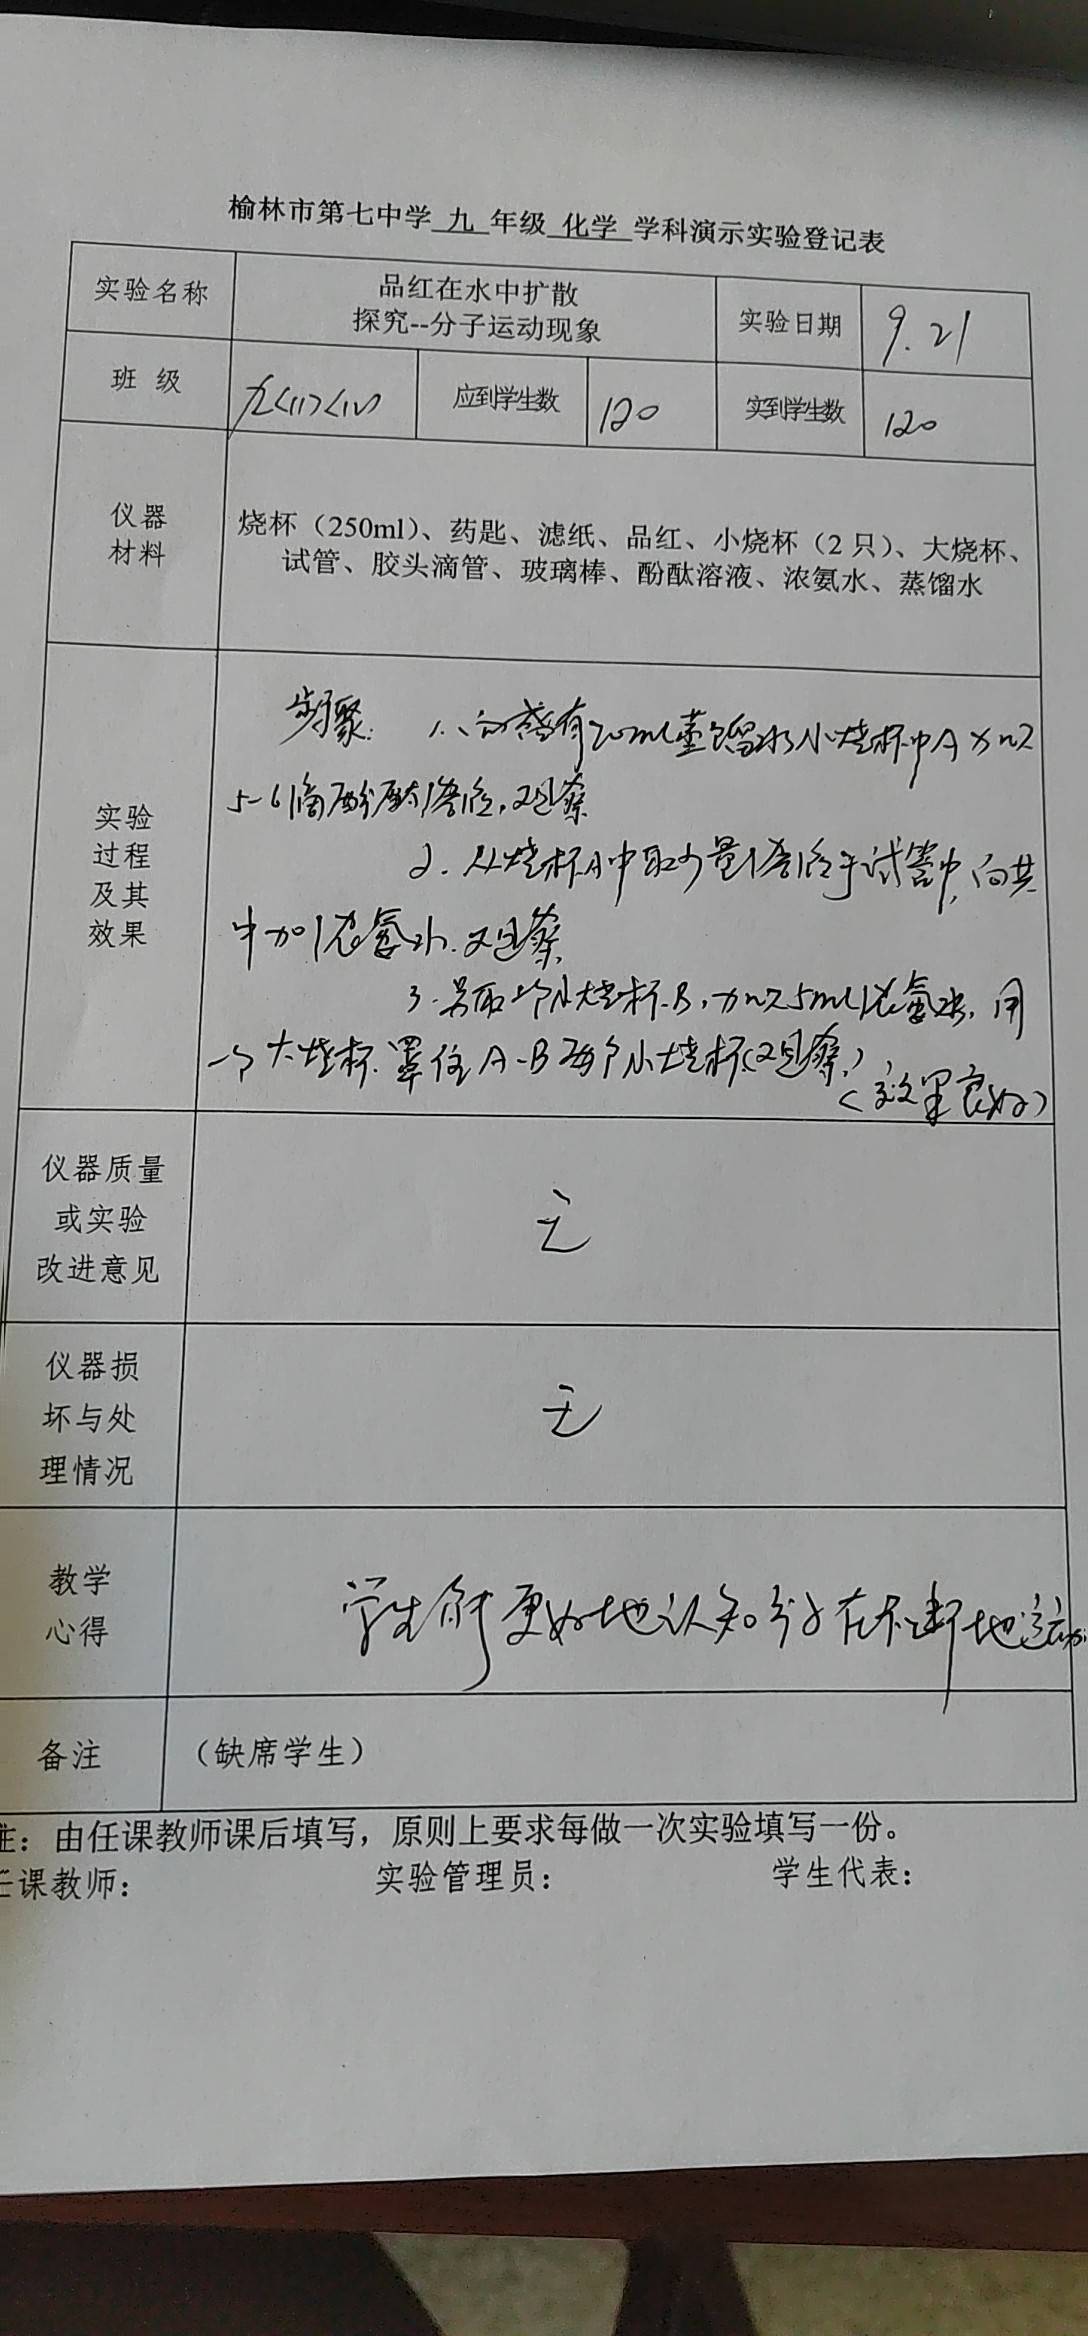 榆林市第七中学 九 年级 化学 学科演示实验登记表
实验名称
品红在水中扩散
探究--分子运动现象
实验日期
9.21
班 级
应到学生数
120
实到学生数
120
仪器
材料
烧杯（250ml）、药匙、滤纸、品红、小烧杯（2 只）、大烧杯、
试管、胶头滴管、玻璃棒、酚酞溶液、浓氨水、蒸馏水
实验
过程
及其
效果
步骤： 1、向盛有20ml蒸馏水小烧杯中A加入
5-6滴酚酞溶液，观察
2. 从烧杯A中取少量溶液于试管中，向其
中加浓氨水.观察
3. 另取一个小烧杯B，加入5ml浓氨水，用
一个大烧杯罩住A、B两个小烧杯（观察）
（效果良好）
仪器质量
或实验
改进意见
无
仪器损
坏与处
理情况
无
教学
心得
学生能更好地认知分子在不断地运动
备注
（缺席学生）
注：由任课教师课后填写，原则上要求每做一次实验填写一份。
任课教师： 实验管理员： 学生代表：